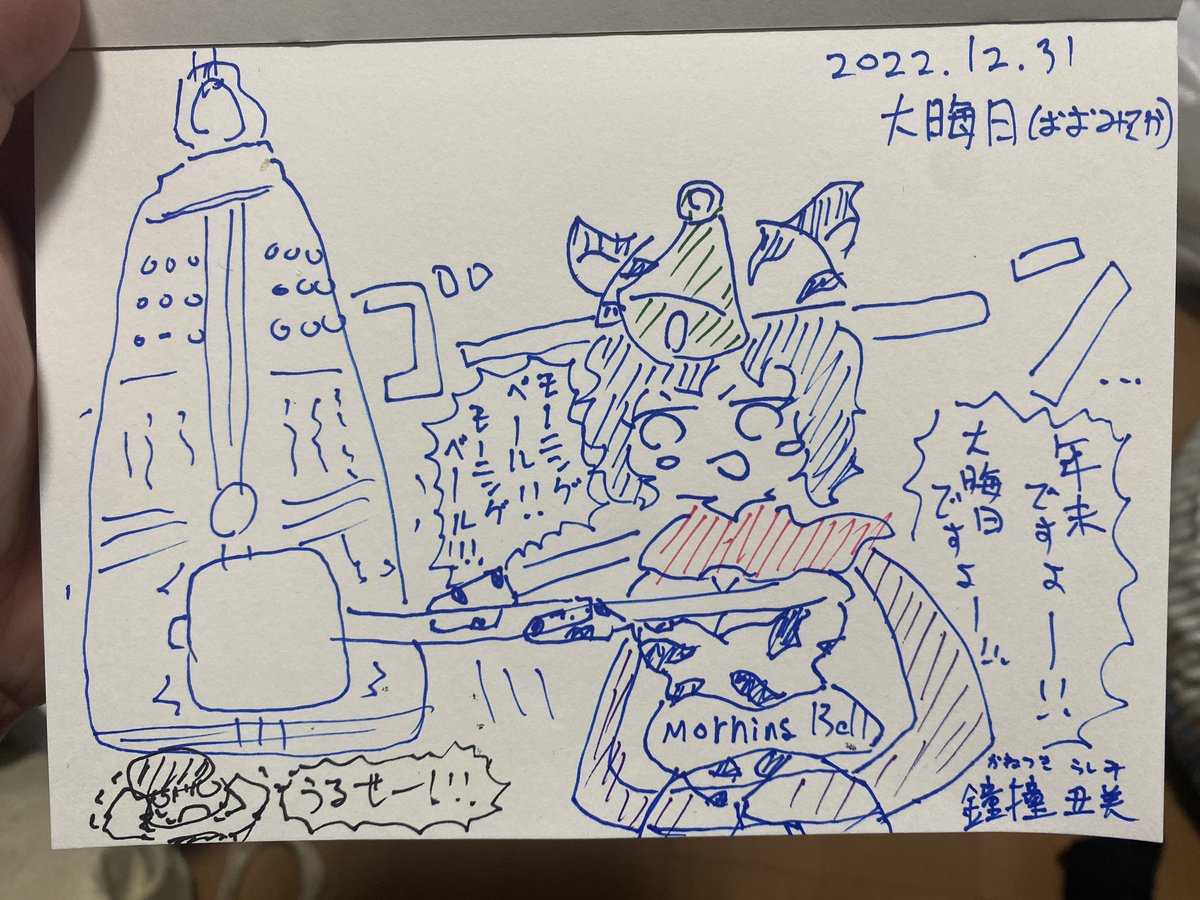 2022.12.31
大晦日(おおみそか)
ゴ
ーン
…
モーニング
ベール!!
モーニング
ベールル!!!
年末
ですよーー!!
大晦日
ですよー!!
Morning Bell
うるせー!!!
かねつき うしみ
鐘撞 丑美